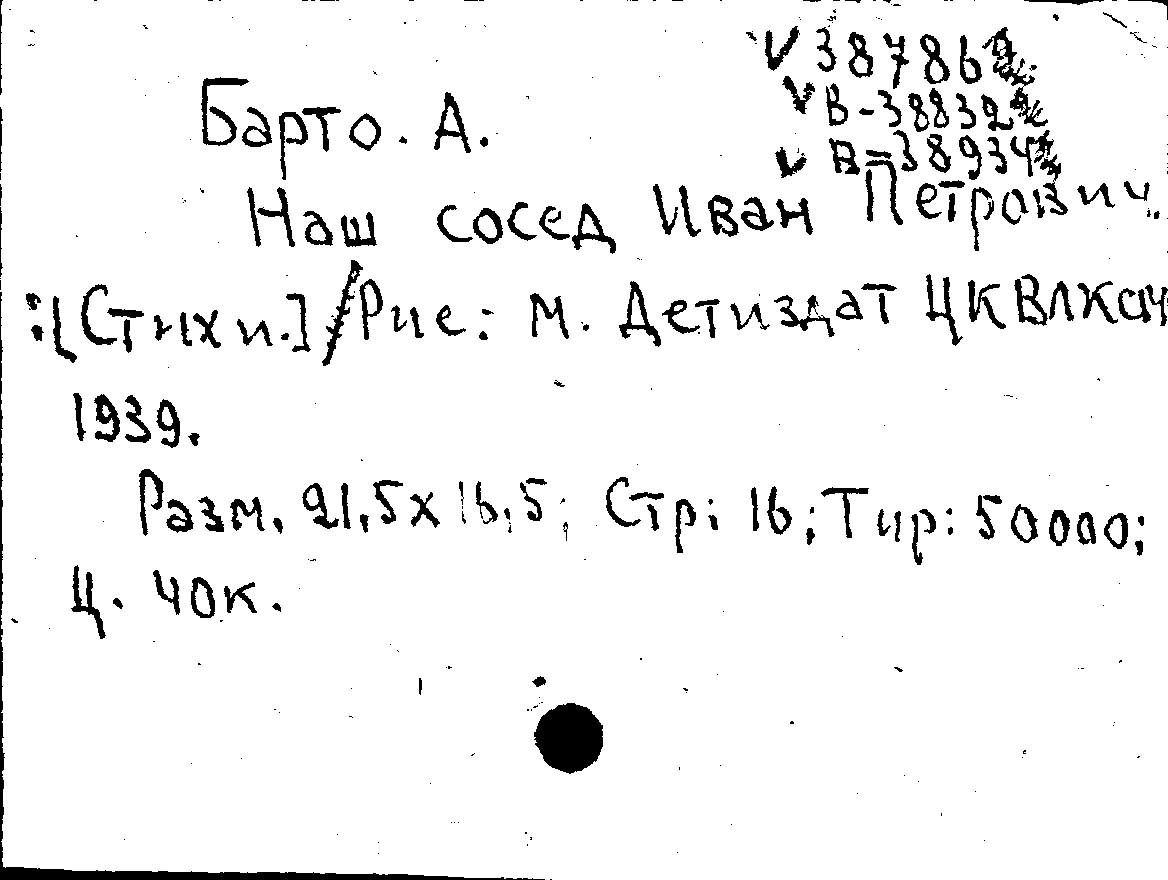 38786
В-38832
В=38934
Барто. А.
Наш сосед Иван Петрович.
:[Стихи.] /Рис: М. Детиздат ЦКВЛКСМ
1939.
Разм. 21,5х16,5; Стр: 16; Тир: 50000;
Ц. 40к.